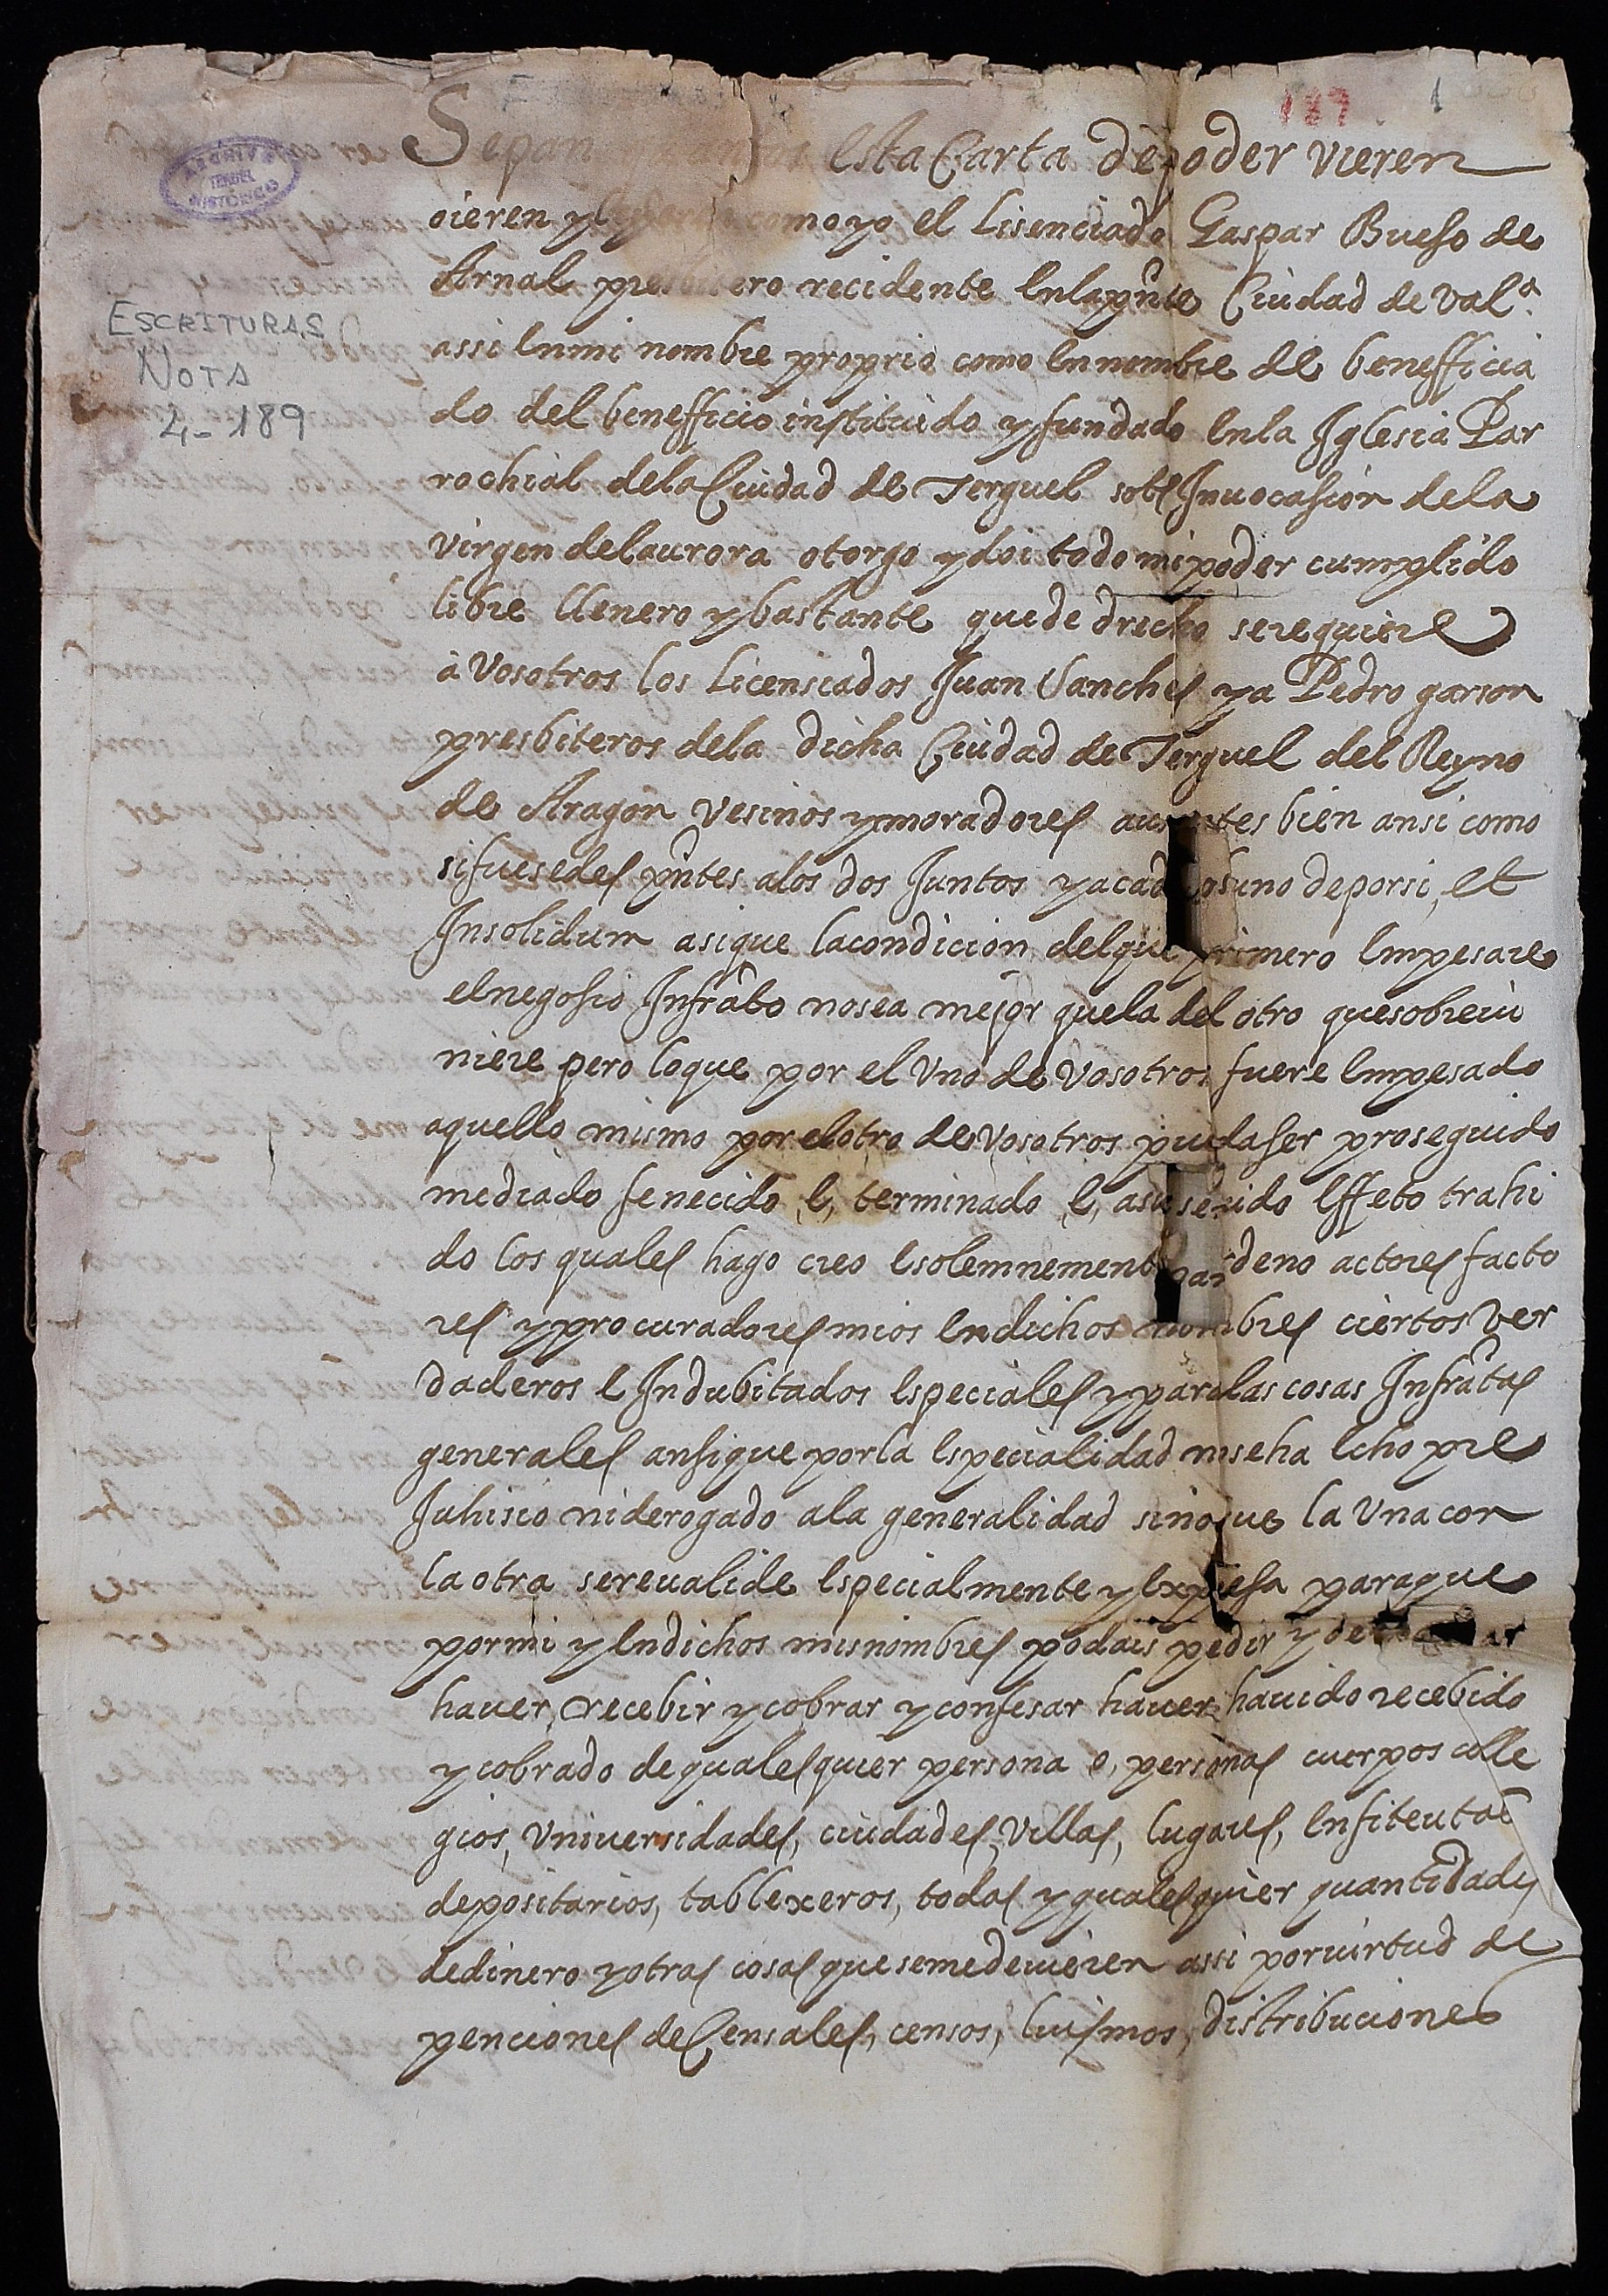 189
1
ARCHIVO
TERUEL
HISTÓRICO
ESCRITURAS
NOTA
4-189
Sepan esta Carta de poder vieren
oieren y como yo el Lisenciado Gaspar Bueso de
Arnal presbitero recidente en la pnte Ciudad de Valª
assi en mi nombre proprio como en nombre de benefficia
do del benefficio instituido y fundado en la Iglesia Par
rochial de la Ciudad de Terguel sots Inuocasion de la
Virgen de la urora otorgo y doi todo mi poder cumplido
libre llenero y bastante que de drecho se requiere
à Vosotros los Licensiados Juan Sanches y a Pedro garson
presbiteros de la dicha Ciudad de Terguel del Reyno
de Aragon Vesinos y moradores ausentes bien ansi como
si fuesedes pntes a los dos Juntos y a cada uno de por si, et
Insolidum asi que la condicion del que primero empesare
el negosio Infrato no sea mejor que la del otro que sobreui
niere pero lo que por el Vno de Vosotros fuere empesado
aquello mismo por el otro de Vosotros pueda ser proseguido
mediado fenecido e, terminado e, a su seuido effeto trahi
do los quales hago creo e solemnement ordeno actores facto
res y procuradores mios en dichos nombres ciertos Ver
daderos e Indubitados especiales y para las cosas Infratas
generales ansi que por la especialidad no se ha echo pre
Juhisio ni derogado a la generalidad sino que la Vna con
la otra se reualide especialmente y expresa para que
por mi y en dichos mis nombres podais pedir y demandar
hauer, recebir y cobrar y confesar hauer hauido recebido
y cobrado de qualesquier persona o, personas cuerpos colle
gios, Vniuersidades, ciudades, Villas, lugares, enfiteutas
depositarios, tablexeros, todas y qualesquier quantidades
de dinero y otras cosas que se me deuieren assi por uirtud de
penciones de Censales, censos, luismos, distribuciones